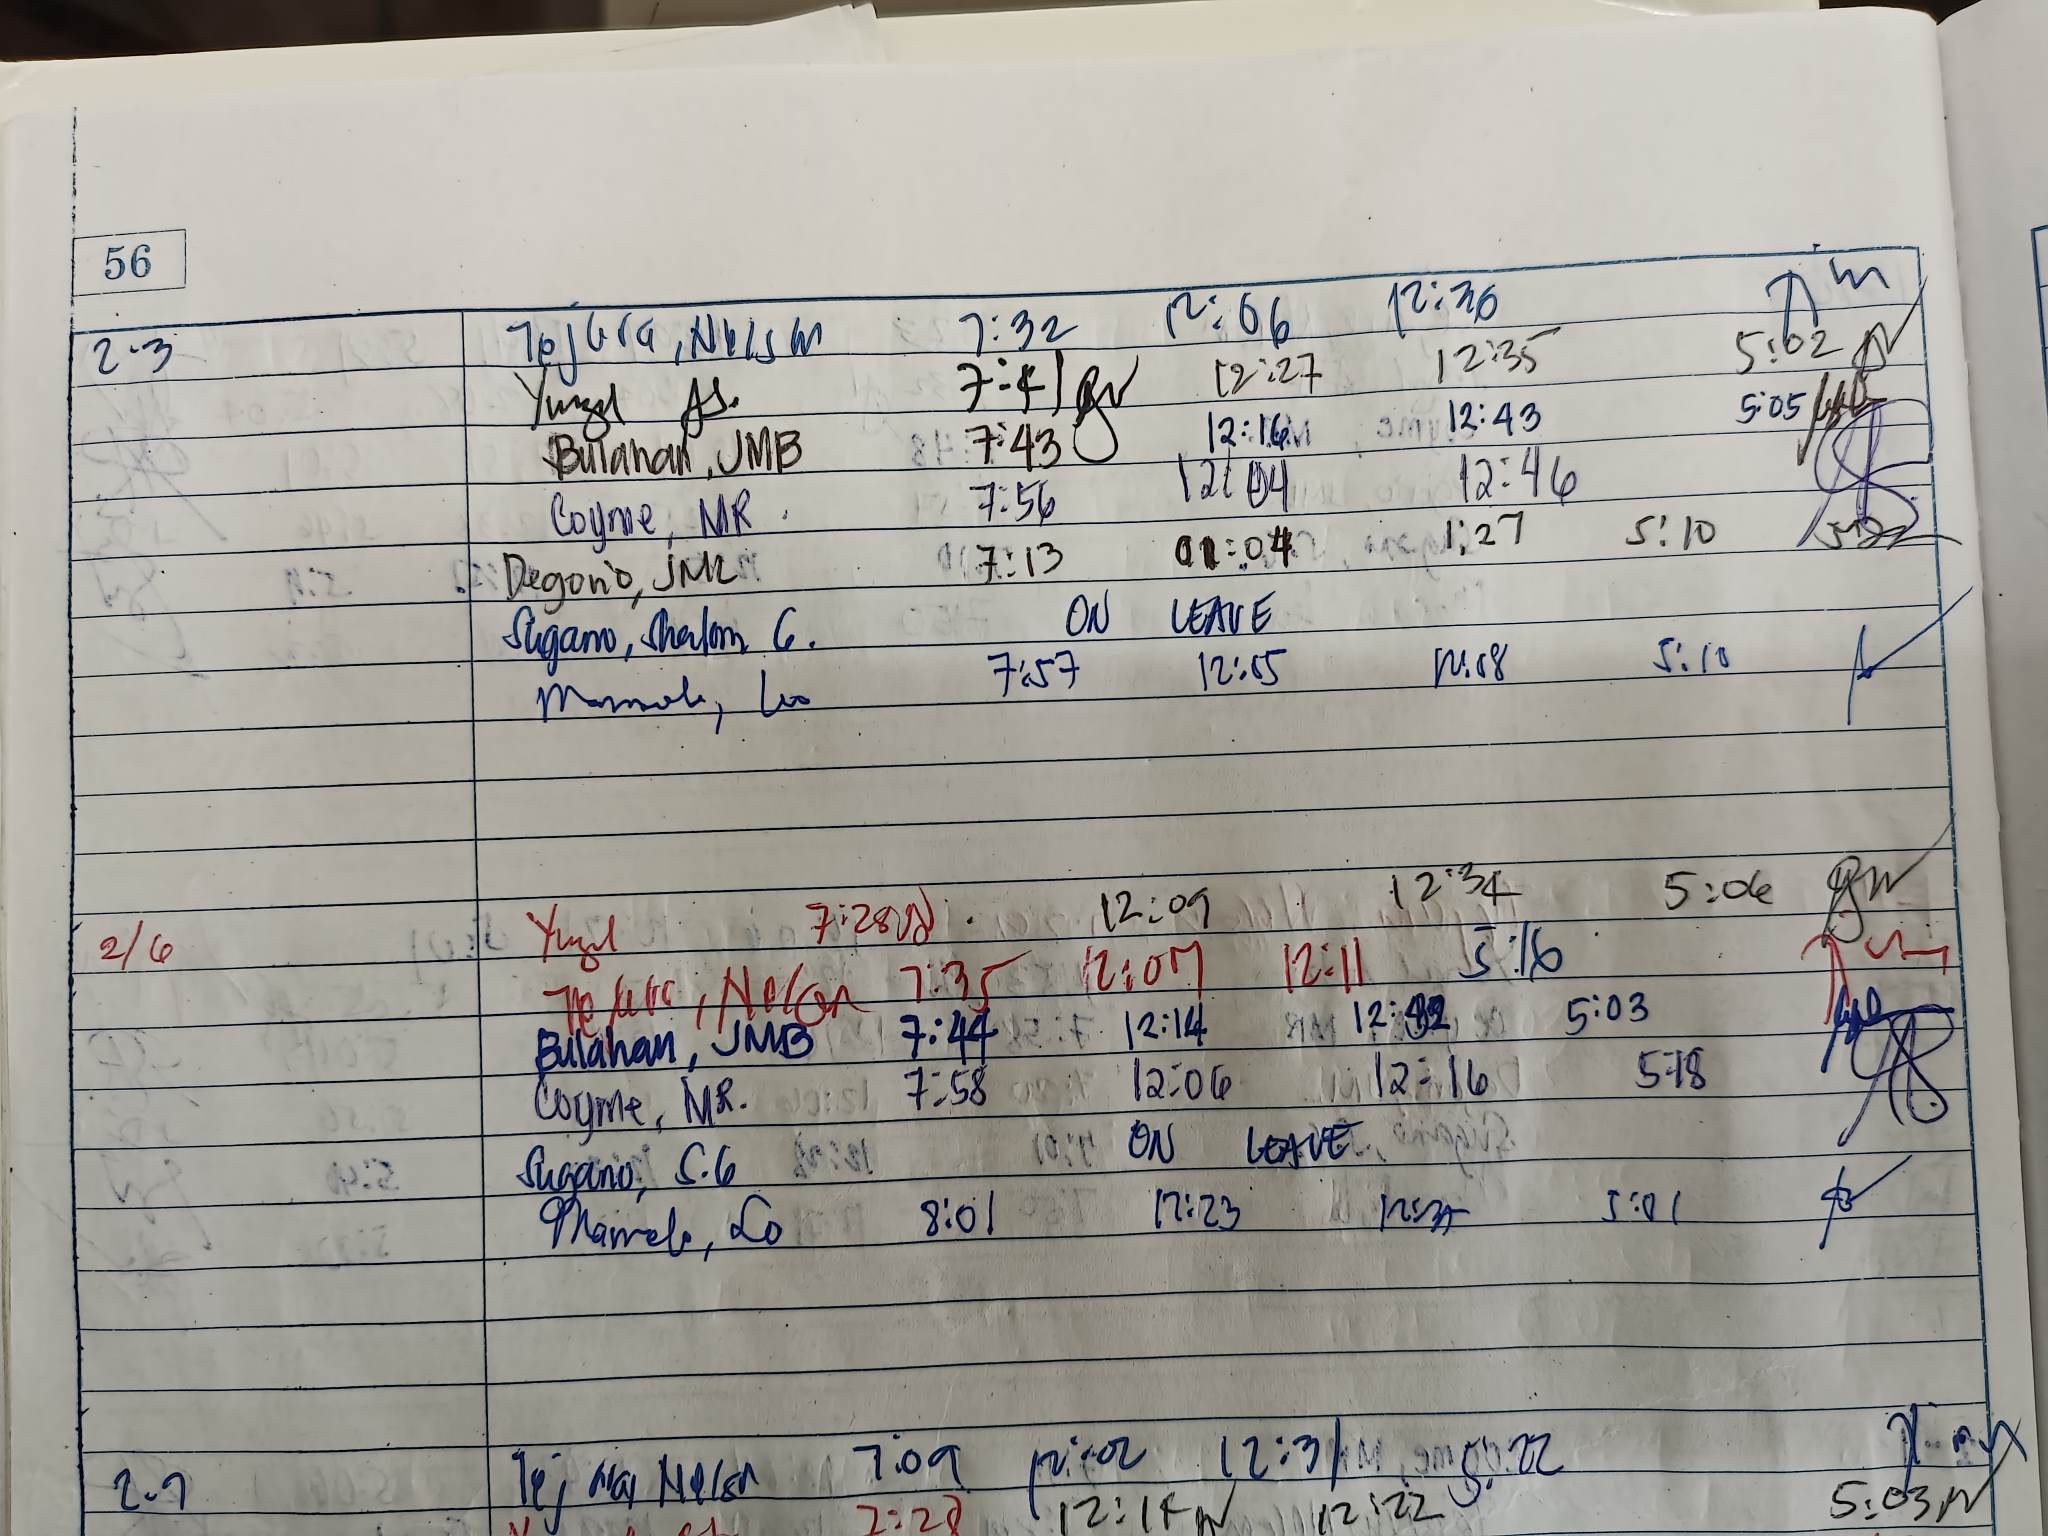 56
2-3 Tejura, Nelson 7:32 12:06 12:30
Yungl 7:41 12:27 12:35 5:02
Bulahan, JMB 7:43 12:16 12:43 5:05
Coyme, MR. 7:56 12:04 12:46
Degorio, JMR 7:13 01:04 1:27 5:10
Sugano, Shalom G. ON LEAVE
Mamale, Leo 7:57 12:05 12:08 5:10
2/6 Yungl 7:28 12:09 12:34 5:06
Tejura, Nelson 7:35 12:07 12:11 5:16
Bulahan, JMB 7:44 12:14 5:03
Coyme, MR. 7:58 12:06 12:16 5:18
Sugano, S.G ON LEAVE
Mamale, Leo 8:01 12:23 5:01
2-7 Nelson 7:09 12:02 12:31 5:22
7:28 12:14 12:22 5:03